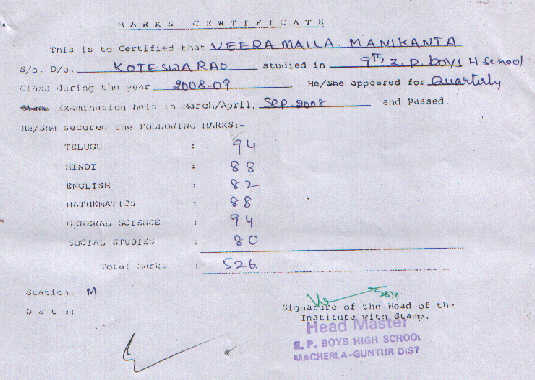 MARKS CERTIFICATE
This is to Certified that VEERAMAILA. MANIKANTA
S/o. D/o. KOTESWARAO studied in 9th, Z. P. boys H School
Class during the year 2008-09 He/She appeared for Quarterly
Examination held in March/April, SEP 2008 and Passed.
He/She secured the FOLLOWING MARKS:-
TELUGU : 94
HINDI : 88
ENGLISH : 82
MATHEMATICS : 88
GENERAL SCIENCE : 94
SOCIAL STUDIES : 80
Total Marks : 526
Station: M
Date:
Signature of the Head of the
Institute with Stamp.
Head Master
Z. P. BOYS HIGH SCHOOL
MACHERLA-GUNTUR DIST